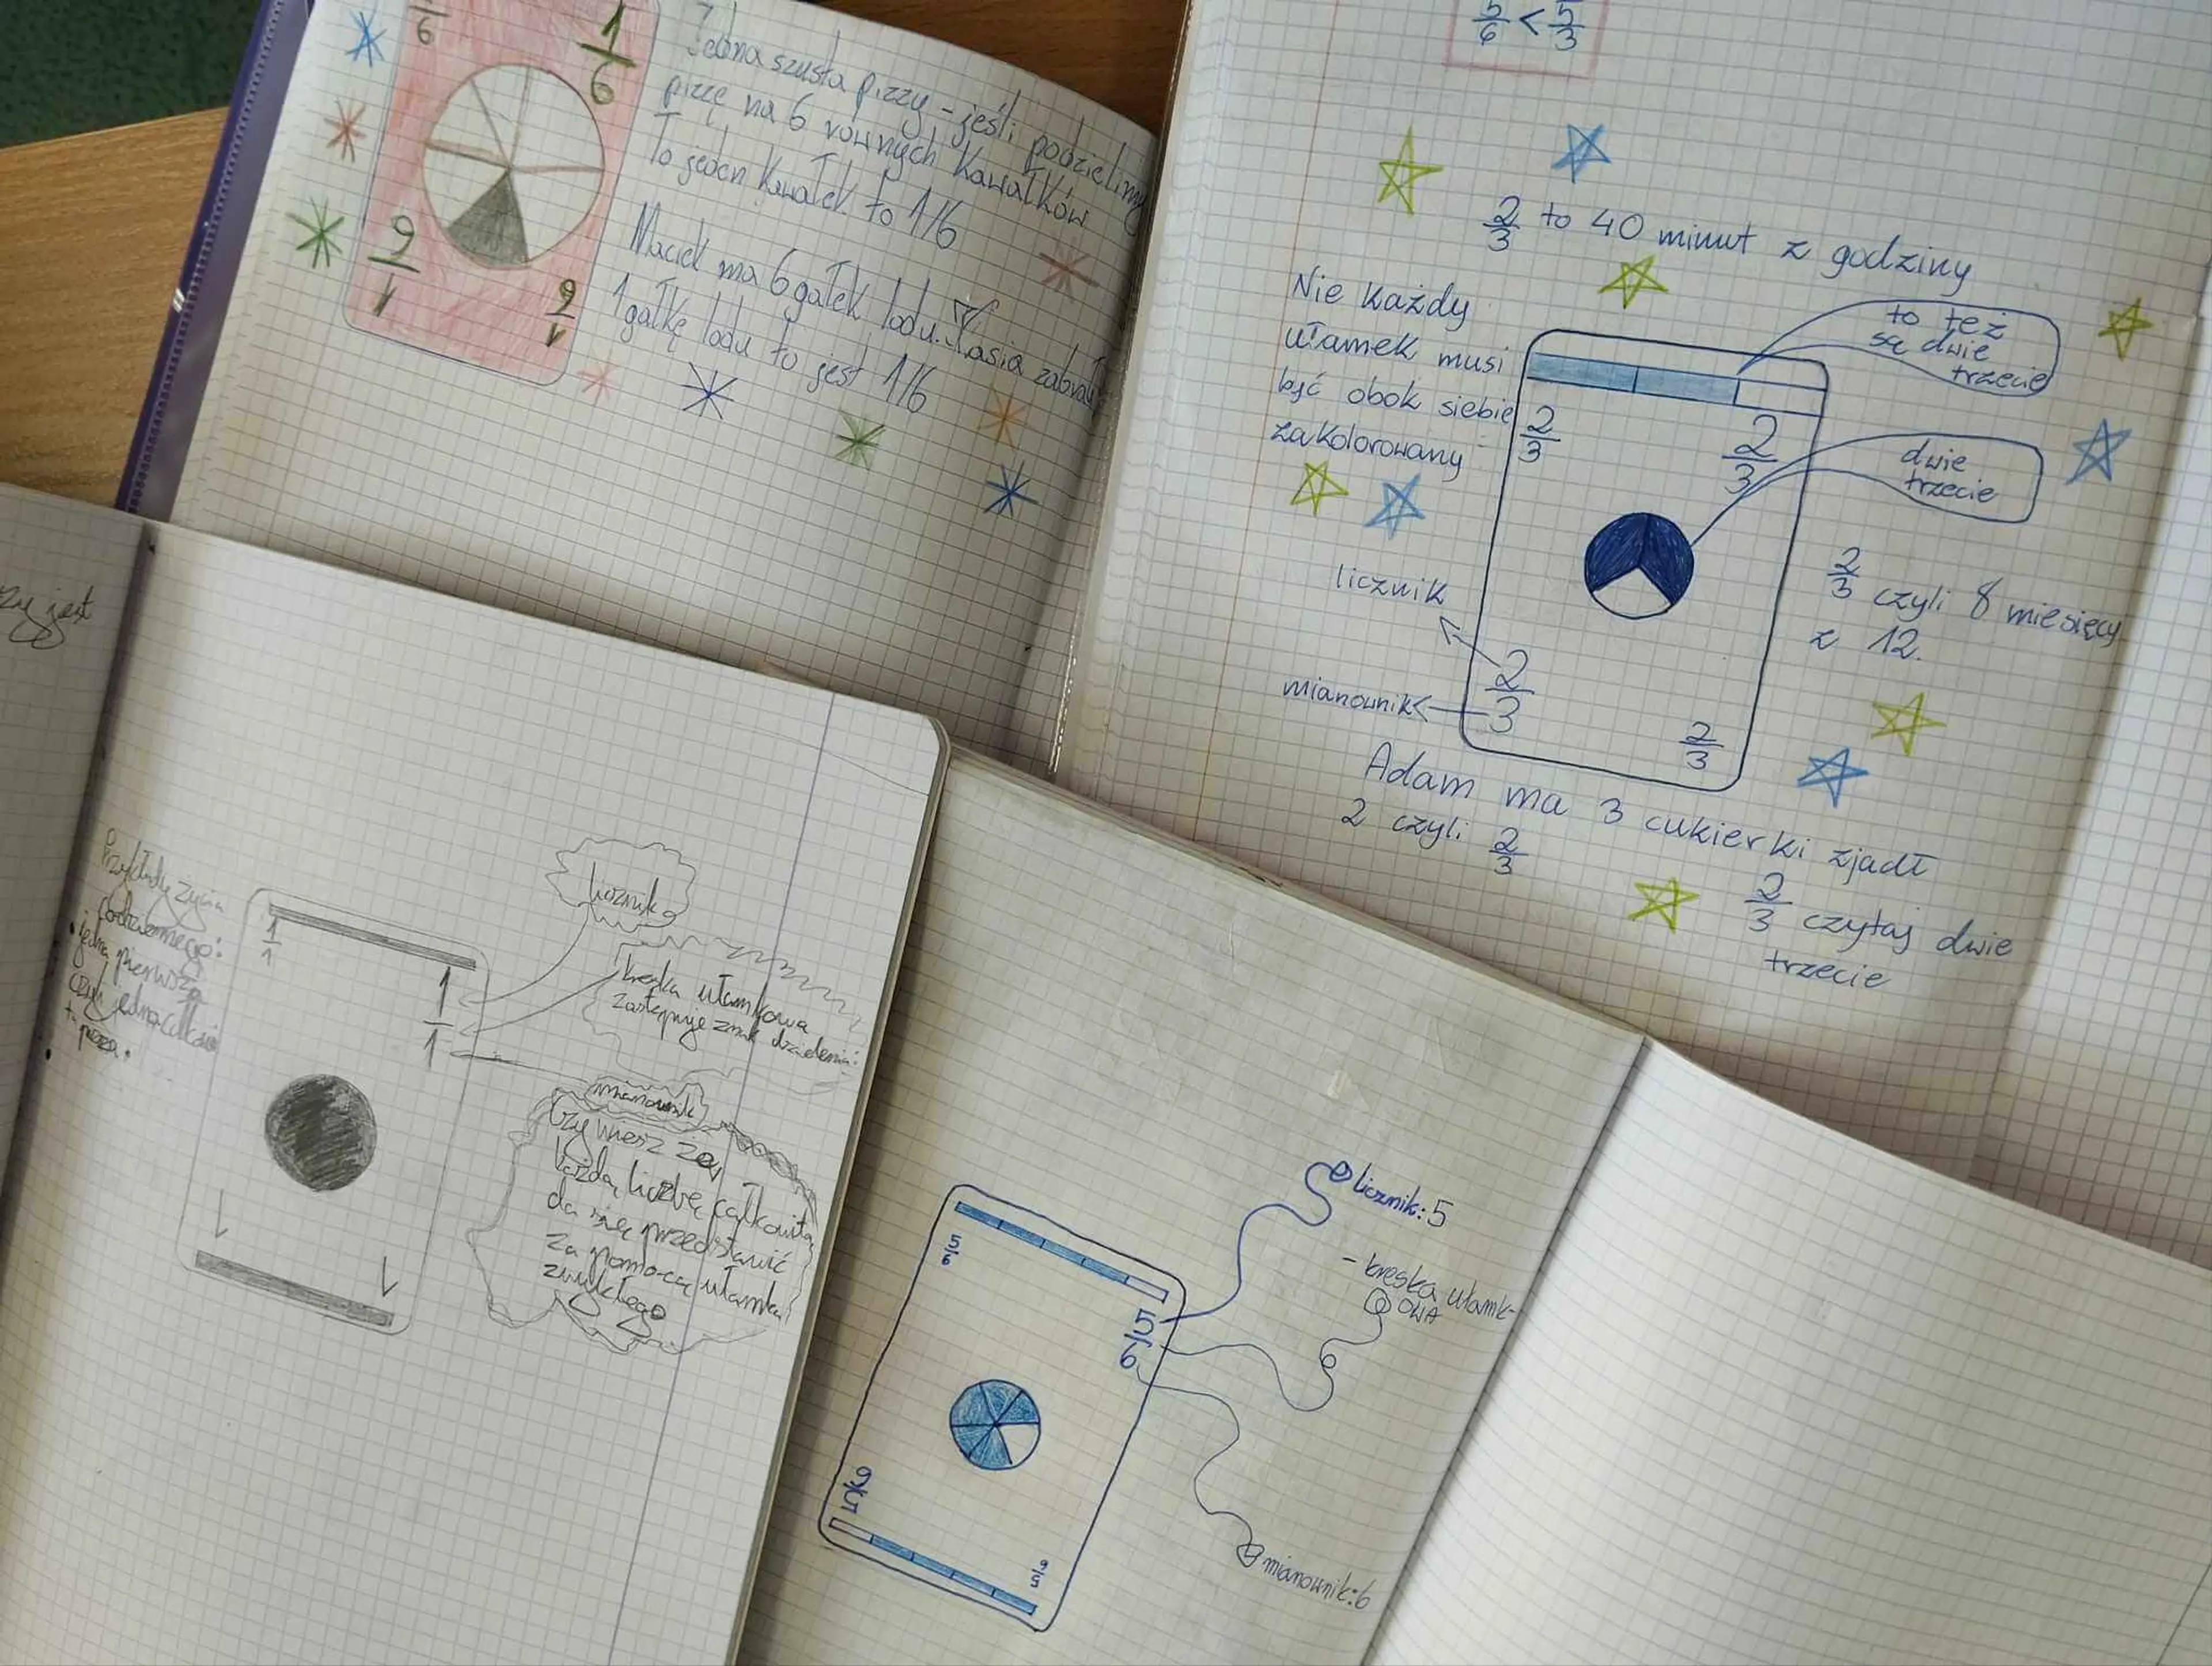 6
1
6
Jedna szusta pizzy - jeśli podzielimy
pizzę na 6 równych kawałków
To jeden kawałek to 1/6
Maciek ma 6 gałek lodu. Kasia zabrała
1 gałkę lodu to jest 1/6
1
6
1
6
5/6 < 5/3
2/3 to 40 minut z godziny
Nie każdy
ułamek musi
być obok siebie
zakolorowany
to też
są dwie
trzecie
2/3
2/3
dwie
trzecie
licznik
mianownik
2/3
2/3
2/3 czyli 8 miesięcy
z 12.
Adam ma 3 cukierki zjadł
2 czyli 2/3
2/3 czytaj dwie
trzecie
jest
Przykłady życia
codziennego:
jedna pierwsza
czyli jedna całość
1/1
1/1
licznik
kreska ułamkowa
zastępuje znak dzielenia:
mianownik
Czy wiesz że
każdą liczbę całkowitą
da się przedstawić
za pomocą ułamka
zwykłego
5/6
5/6
licznik: 5
- kreska ułamk-
OWA
mianownik: 6
5/6
5/6